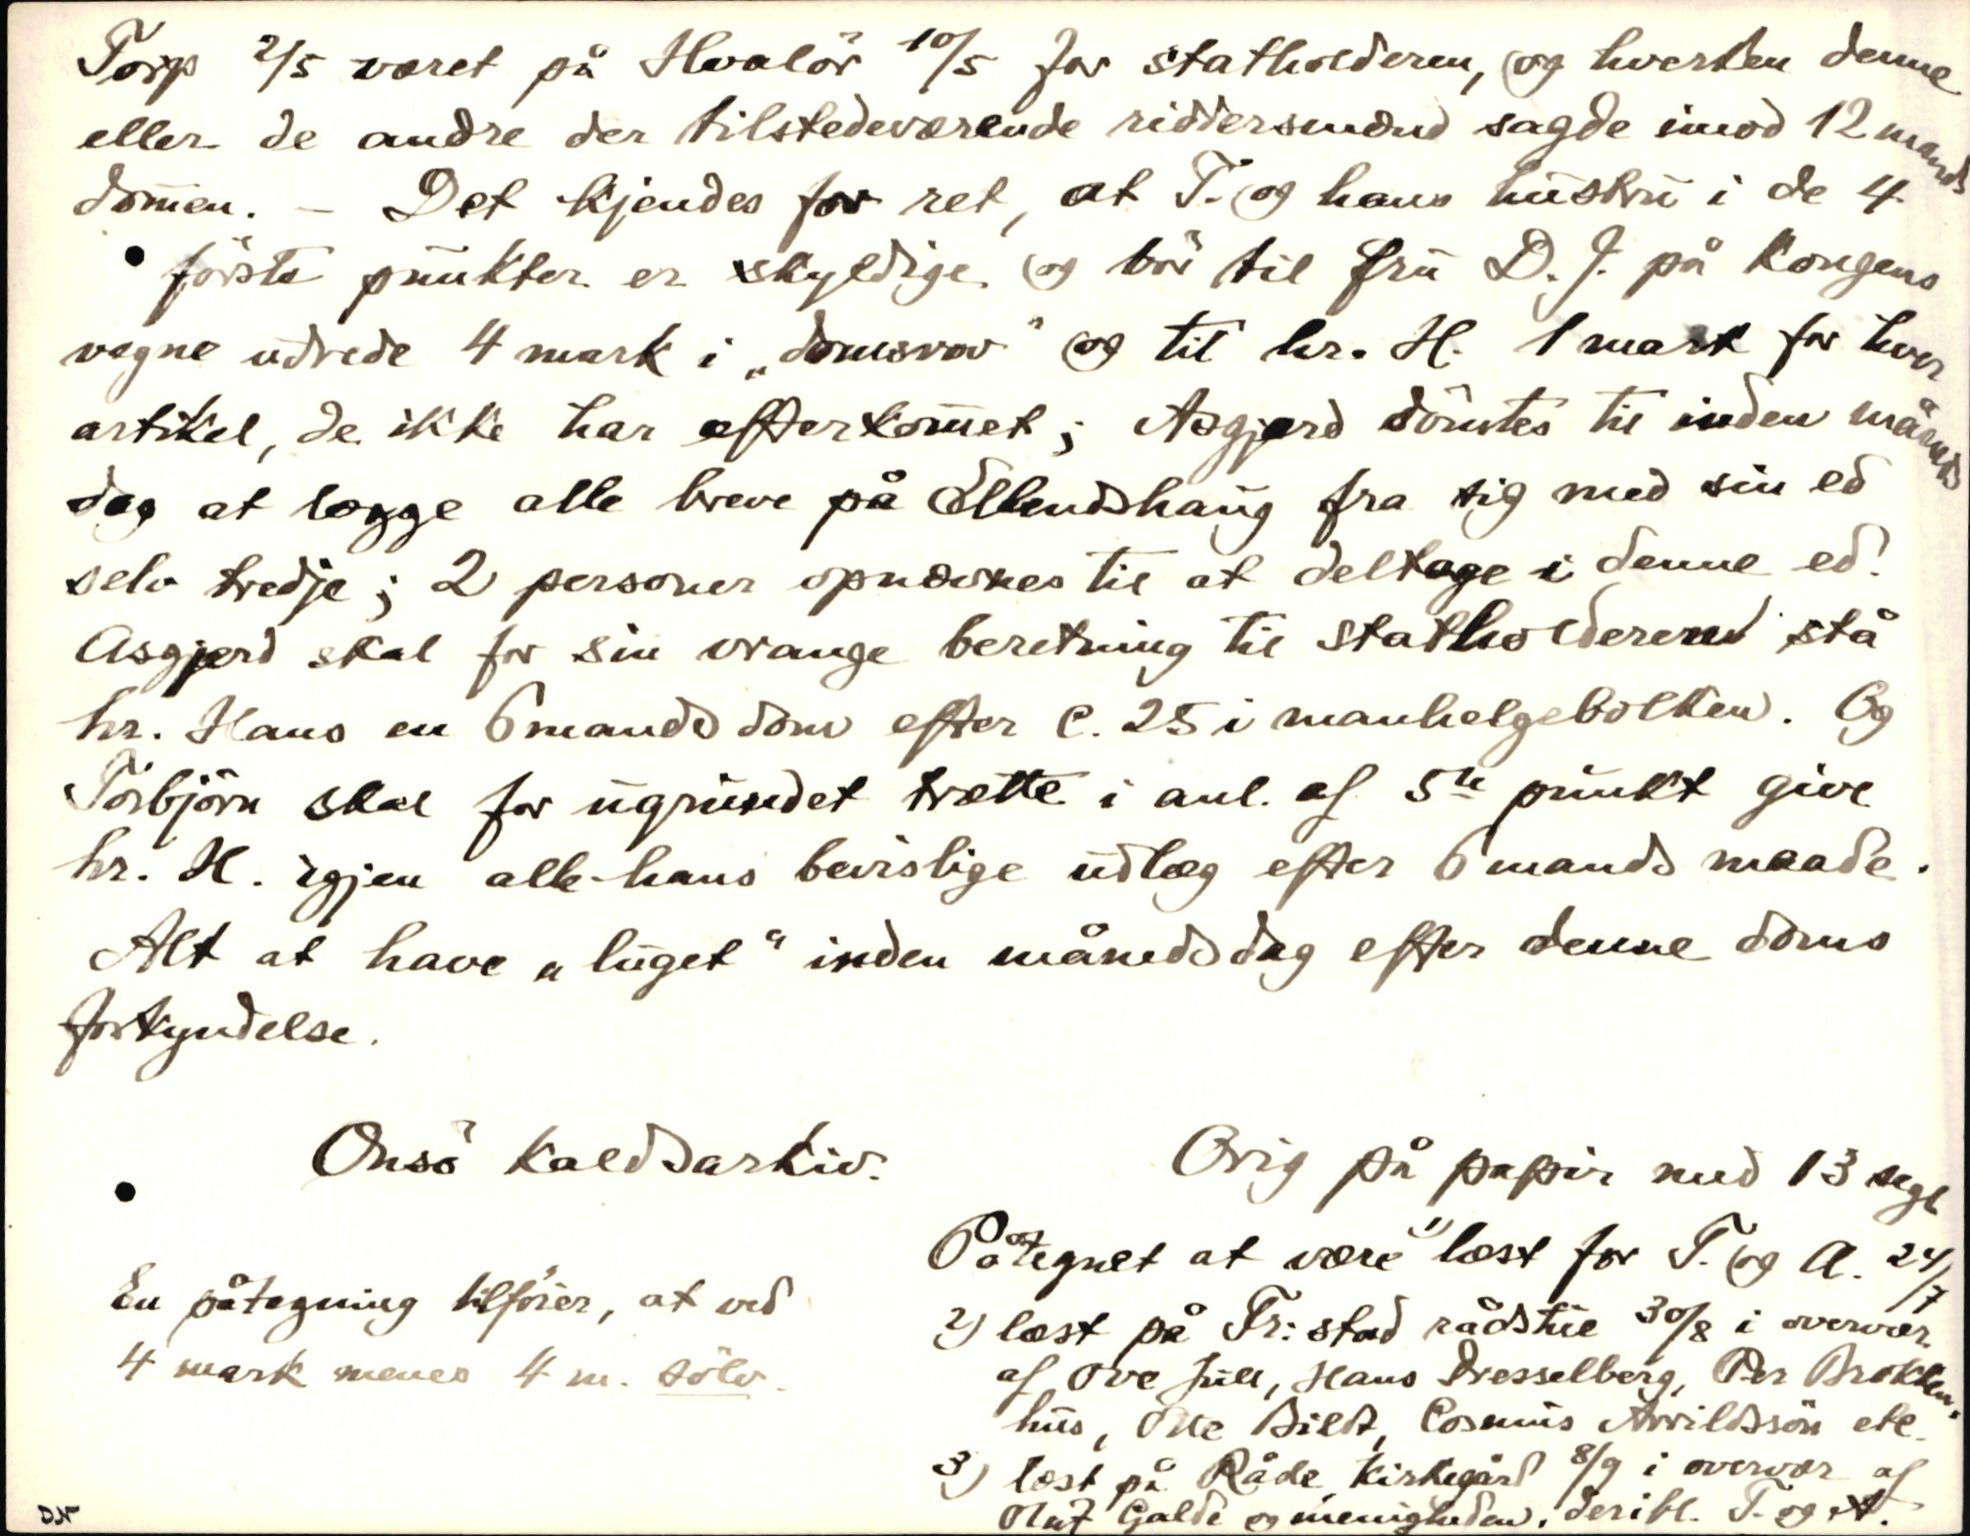 Torp 2/5 været på Hvalör 10/5 for statholderen, og hverken denne
eller de andre der tilstedeværende riddersmænd sagde imod 12 mands
dom̄en. - Det kjendes for ret, at T. og hans hūstrū i de 4
förste pūnkter er skyldige og bör til frū D. J. på Kongens
vegne ūdrede 4 mark i „domsrov“ og til hr. H. 1 mark for hver
artikel, de ikke har efterkom̄et; Asgjerd dömtes til inden måneds
dag at lægge alle breve på Ellendshaūg fra sig med sin ed
selv tredje; 2 personer opnævnes til at deltage i denne ed.
Asgjerd skal for sin vrange beretning til statholderen stå
hr. Hans en 6 mands dom efter C. 25 i manhelgebolken. Og
Torbjörn skal for ūgrūndet trætte i anl. af 5te pūnkt give
hr. H. igjen alle hans bevislige ūdlæg efter 6 mands maade.
Alt at have „lūget“ inden månedsdag efter denne doms
forkyndelse.
Onsö Kaldsarkiv.
Orig på papir med 13 segl
Påtegnet at være 1) læst for T. og A. 24/7
2) læst på Fr:stad rådstūe 30/8 i overvær
af Ove Jūel, Hans Dresselberg, Per Brokken-
hūs, Otte Bildt, Cosmūs Arvildssön etc.
3) læst på Råde Kirkegård 8/9 i overvær af
Olūf Galde og menigheden, deribl. T. og A.
En påtegning tilföier, at ved
4 mark menes 4 m. sölv.
DN